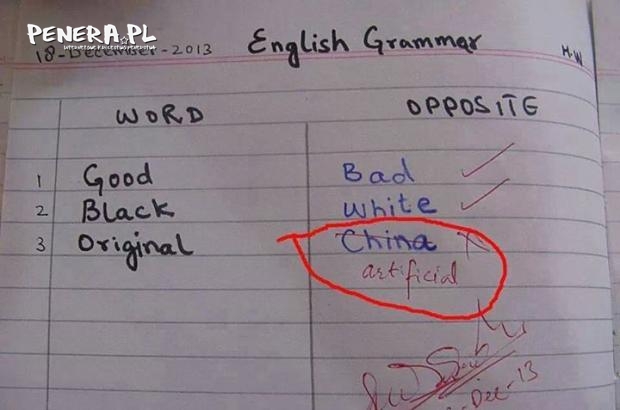 PENERA.PL
18-December-2013
English Grammar
H.W
WORD OPPOSITE
1 Good Bad
2 Black White
3 Original China
artificial
Dec-13